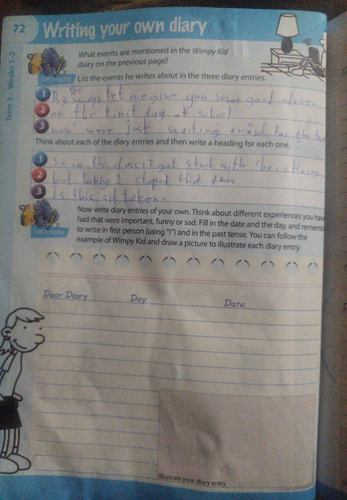 72
Writing your own diary
What events are mentioned in the Wimpy Kid
diary on the previous page?
Let's write
List the events he writes about in the three diary entries.
1 By let me give you some good advice
2 on the first day of school
3 your just waiting around for the
Think about each of the diary entries and then write a heading for each one.
1 So in this class I got stuck with Chris
2 but luckly I stoped that
3 Is this sit taken.
Let's write
Now write diary entries of your own. Think about different experiences you have
had that were important, funny or sad. Fill in the date and the day, and remember
to write in first person (using "I") and in the past tense. You can follow the
example of Wimpy Kid and draw a picture to illustrate each diary entry.
Dear Diary Day: Date:
Illustrate your diary entry
Term 3 – Weeks 1–2